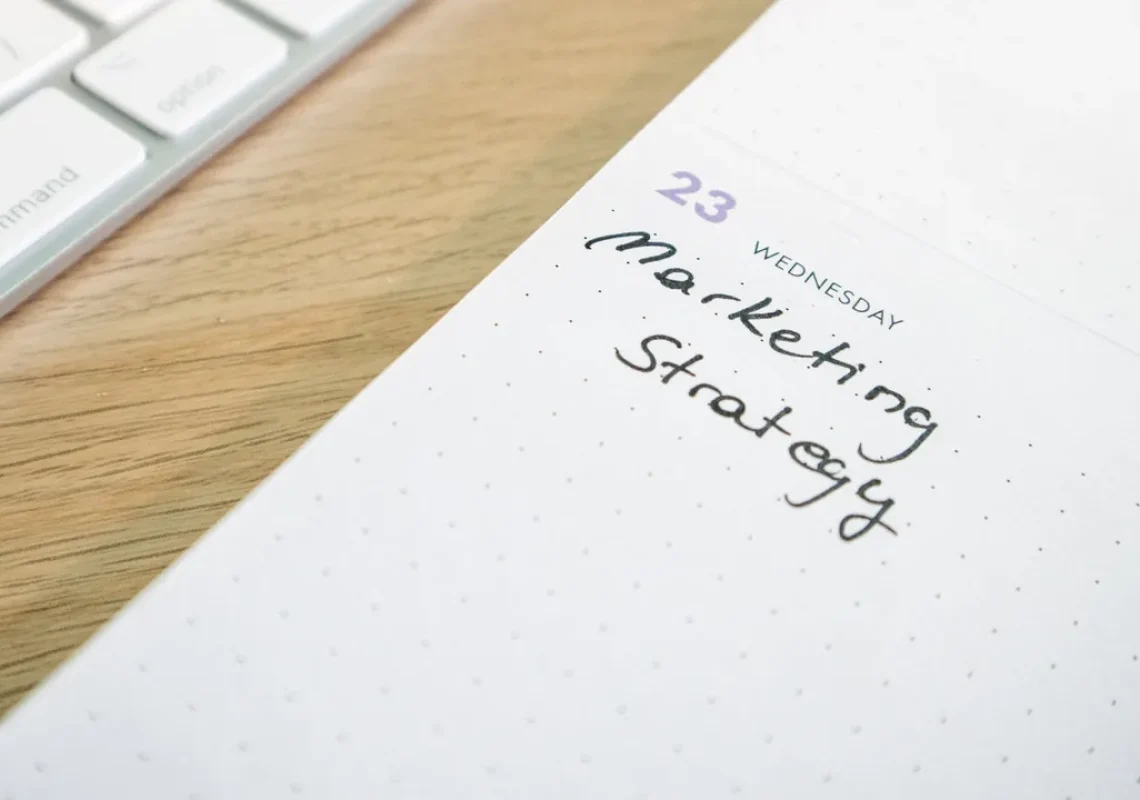 option
command
23
WEDNESDAY
Marketing
Strategy